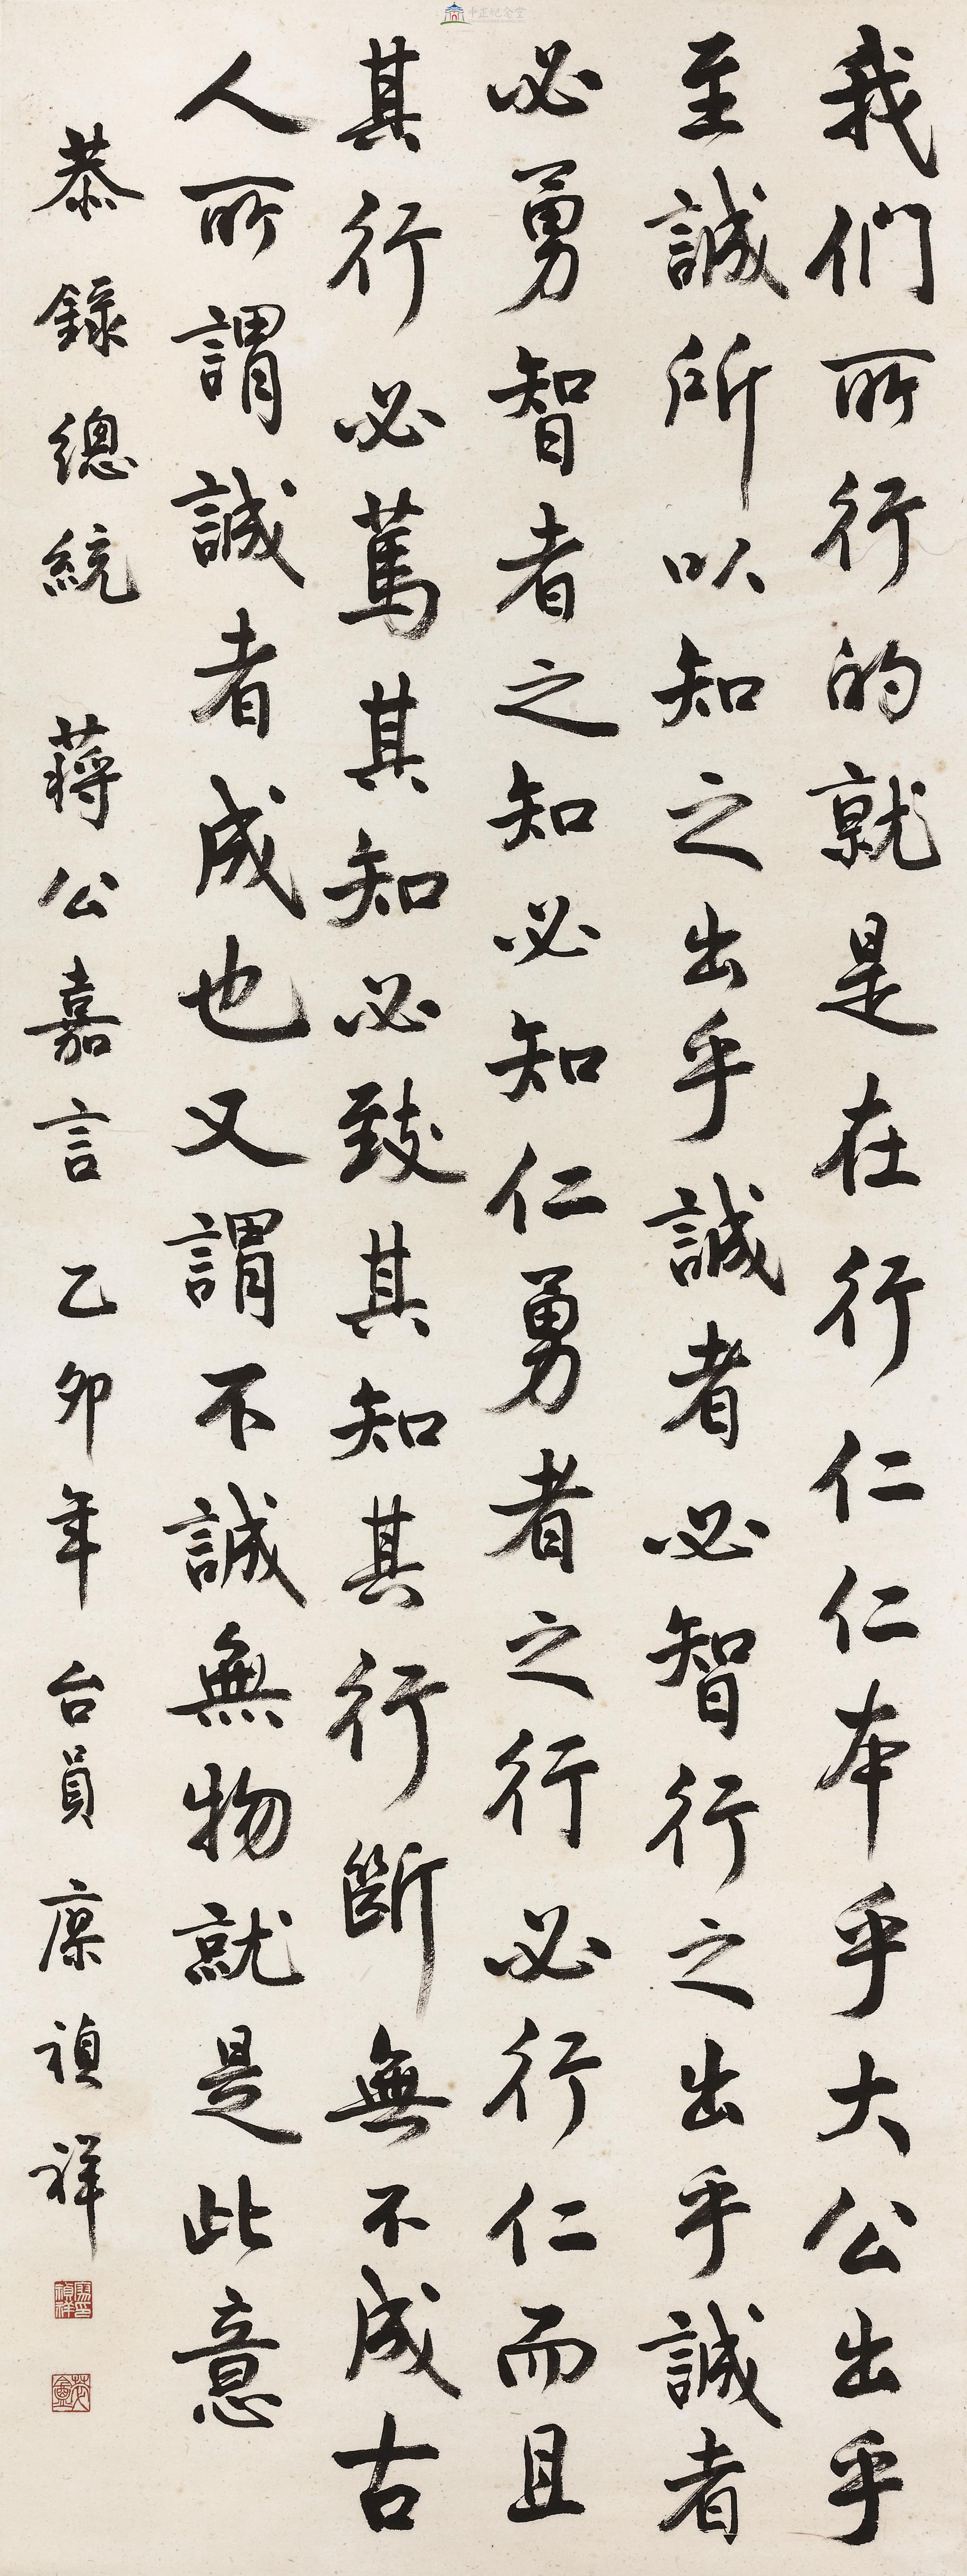 我們所行的就是在行仁仁本乎大公出乎
至誠所以知之出乎誠者必智行之出乎誠者
必勇智者之知必知仁勇者之行必行仁而且
其行必篤其知必致其知其行斷無不成古
人所謂誠者成也又謂不誠無物就是此意
恭錄總統 蔣公嘉言 乙卯年 台員 廖禎祥
中正紀念堂